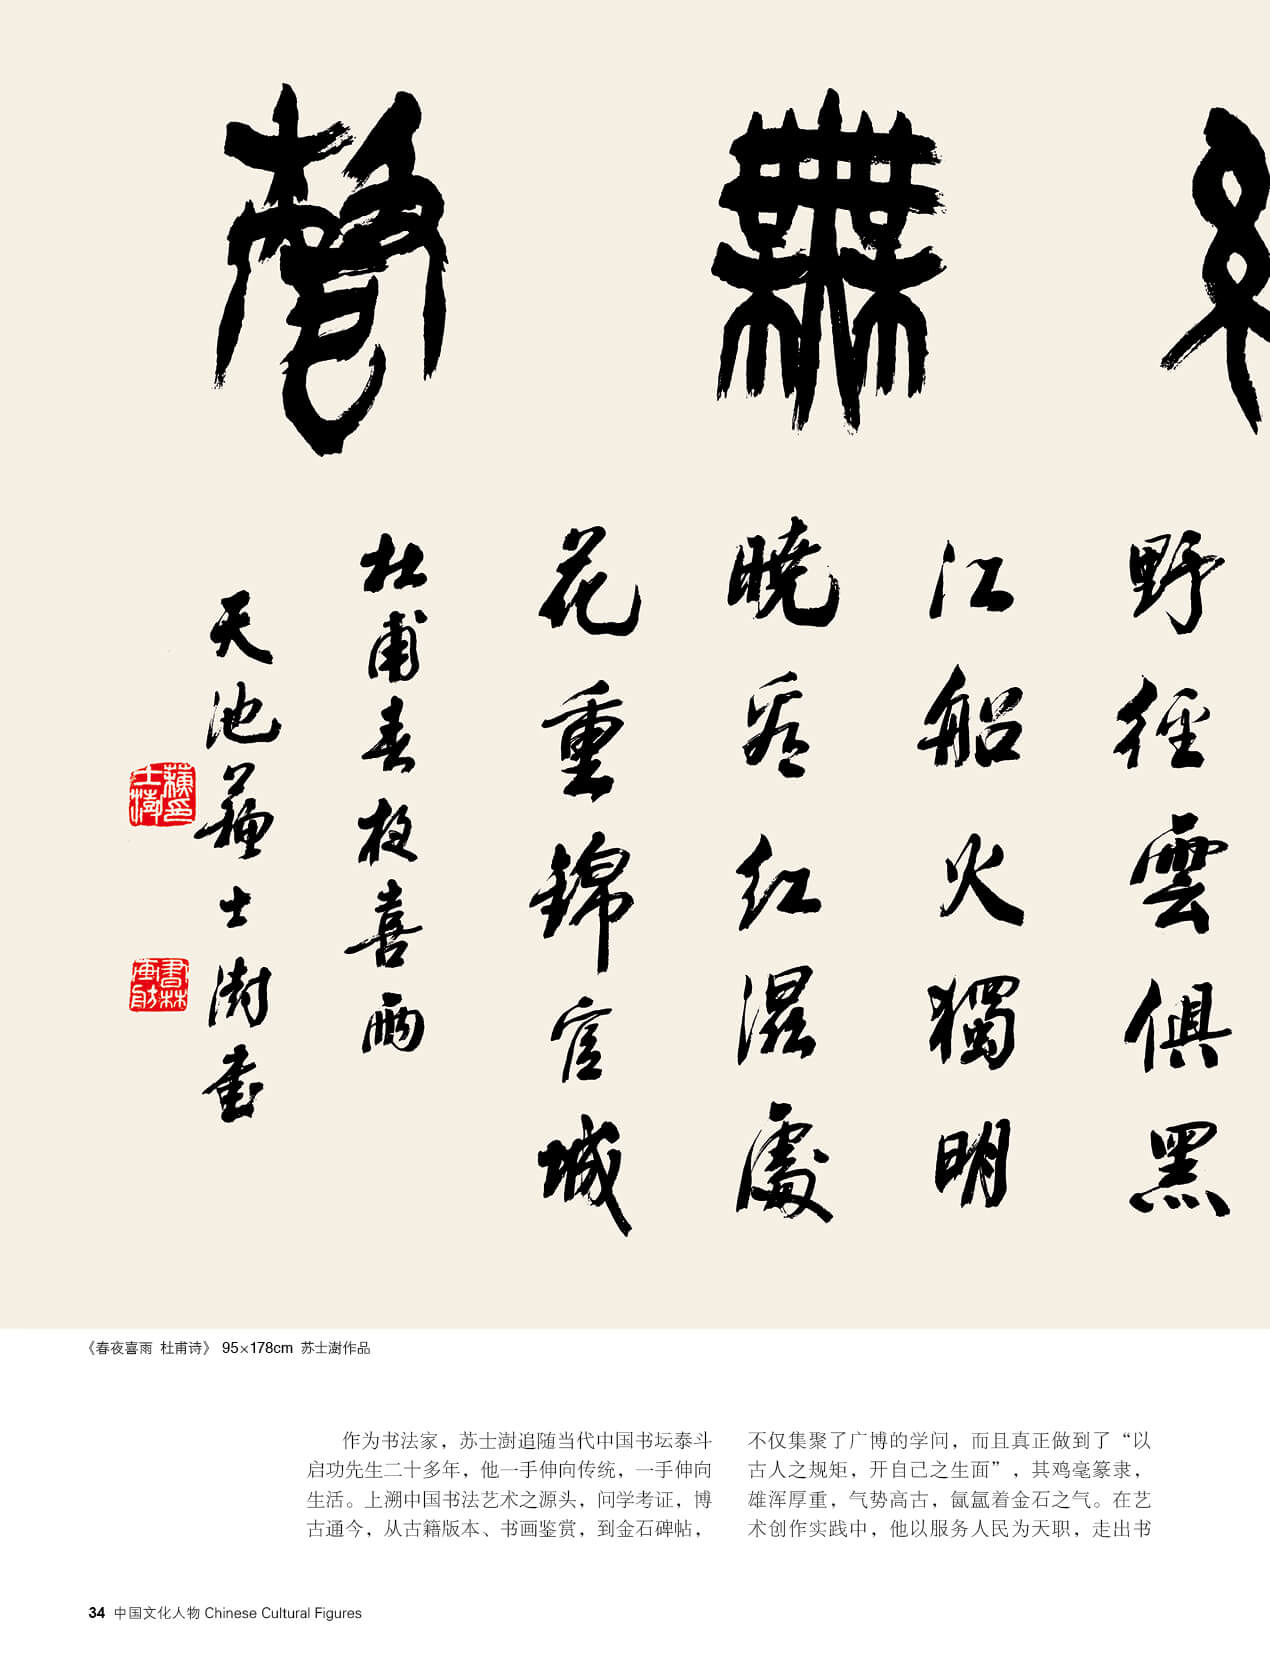 細
無
聲
野徑雲俱黑
江船火獨明
曉看紅濕處
花重錦官城
杜甫春夜喜雨
天池蘇士澍書
蘇士澍印
《春夜喜雨 杜甫诗》 95×178cm 苏士澍作品
作为书法家，苏士澍追随当代中国书坛泰斗
启功先生二十多年，他一手伸向传统，一手伸向
生活。上溯中国书法艺术之源头，问学考证，博
古通今，从古籍版本、书画鉴赏，到金石碑帖，
不仅集聚了广博的学问，而且真正做到了“以
古人之规矩，开自己之生面”，其鸡毫篆隶，
雄浑厚重，气势高古，氤氲着金石之气。在艺
术创作实践中，他以服务人民为天职，走出书
34 中国文化人物 Chinese Cultural Figures